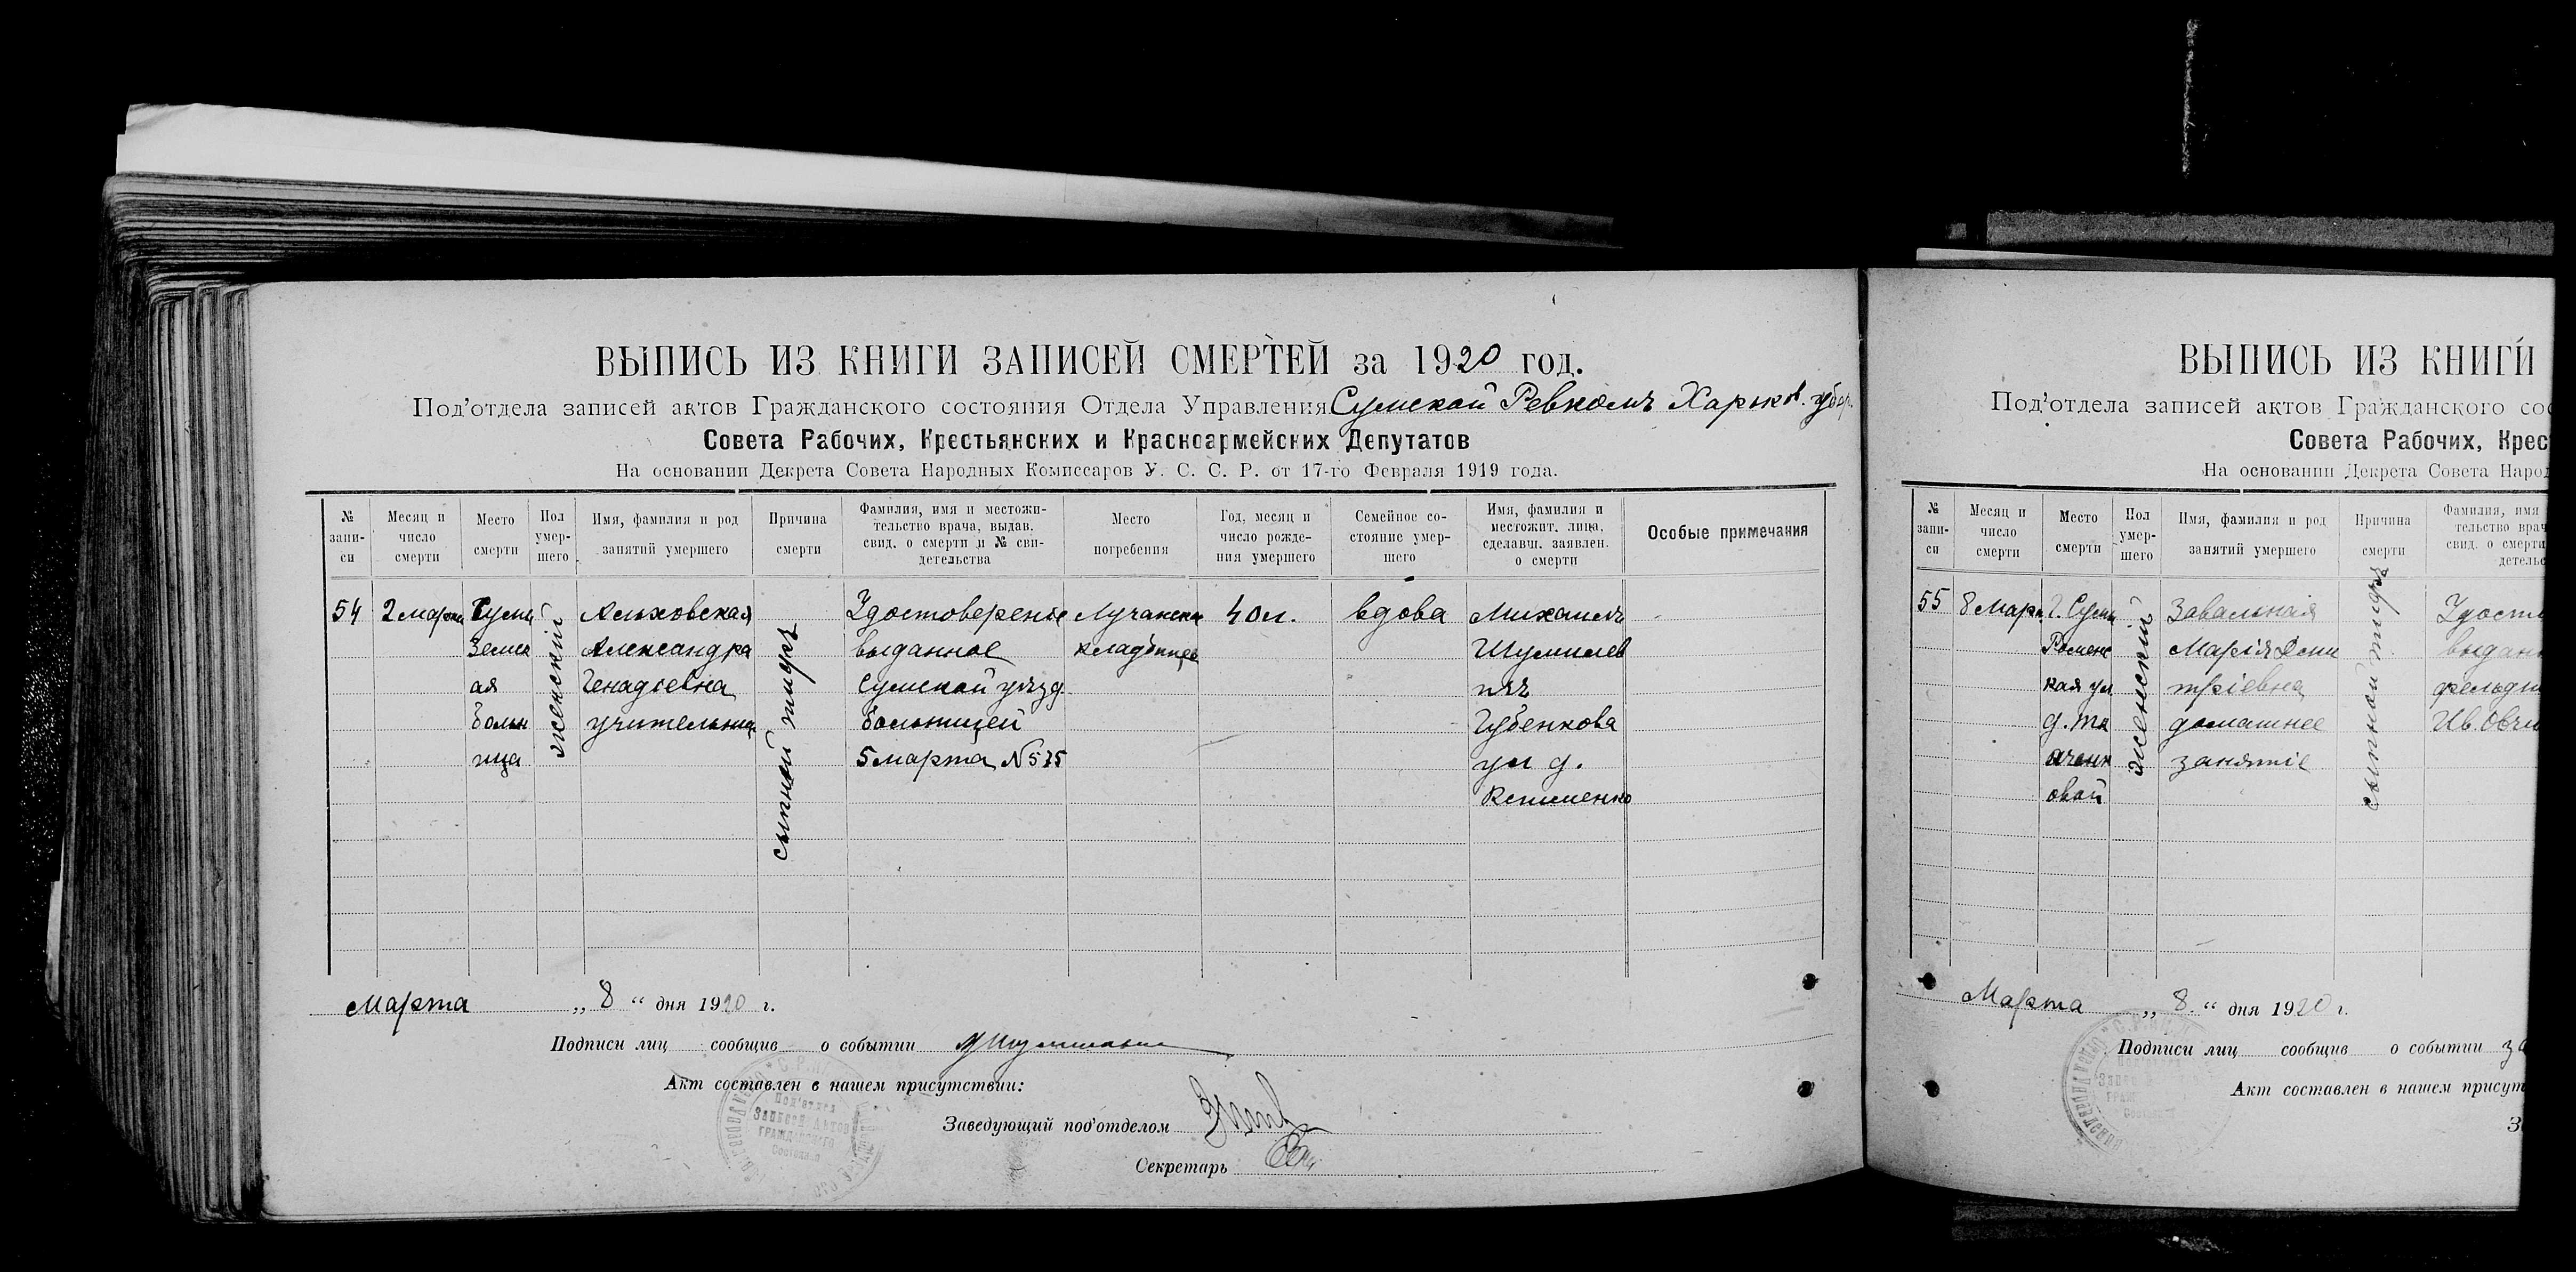 ВЫПИСЬ ИЗ КНИГИ ЗАПИСЕЙ СМЕРТЕЙ за 1920 год.
Под'отдела записей актов Гражданского состояния Отдела Управления Сумской Ревкомъ Харьков. губер.
Совета Рабочих, Крестьянских и Красноармейских Депутатов
На основании Декрета Совета Народных Комиссаров У. С. С. Р. от 17-го Февраля 1919 года.
№ запи-си
Месяц и число смерти
Место смерти
Пол умер-шего
Имя, фамилия и род занятий умершего
Причина смерти
Фамилия, имя и местожи-тельство врача, выдав. свид. о смерти и № сви-детельства
Место погребения
Год, месяц и число рожде-ния умершего
Семейное со-стояние умер-шего
Имя, фамилия и местожит. лица, сделавш. заявлен. о смерти
Особые примечания
54
2 марта
Сумы
Земск
ая
больн
ица
женский
Альховская
Александра
Генадіевна
учительница
сыпной тифъ
Удостоверенье
выданное
Сумской уезд
больницей
5 марта N 575
Лучански
кладбище
40 л.
вдова
Михаилъ
Шумилов
Губенкова
ул д.
Клименко
Марта „ 8 “ дня 1920 г.
Подписи лиц сообщив о событии
Акт составлен в нашем присутствии:
Заведующий под'отделом
Секретарь
Под'отдел
Записей Актов
Гражданского
Состояния
ВЫПИСЬ ИЗ КНИГИ
Под'отдела записей актов Гражданского сос
Совета Рабочих, Крест
На основании Декрета Совета Народ
№ запи-си
Месяц и число смерти
Место смерти
Пол умер-шего
Имя, фамилия и род занятий умершего
Причина смерти
Фамилия, имя
тельство врач
свид. о смерти
детельс
55
8 Марта
г. Сумы
Роменс
кая ул
д. Тк
аченк
овой
женский
Завальная
Марія Дми
тріевна
домашнее
занятіе
сыпной тифъ
Удосто
выдан
фельдш
Ив. Овчи
Марта „ 8. “ дня 1920 г.
Подписи лиц сообщив о событии за
Акт составлен в нашем присут
З